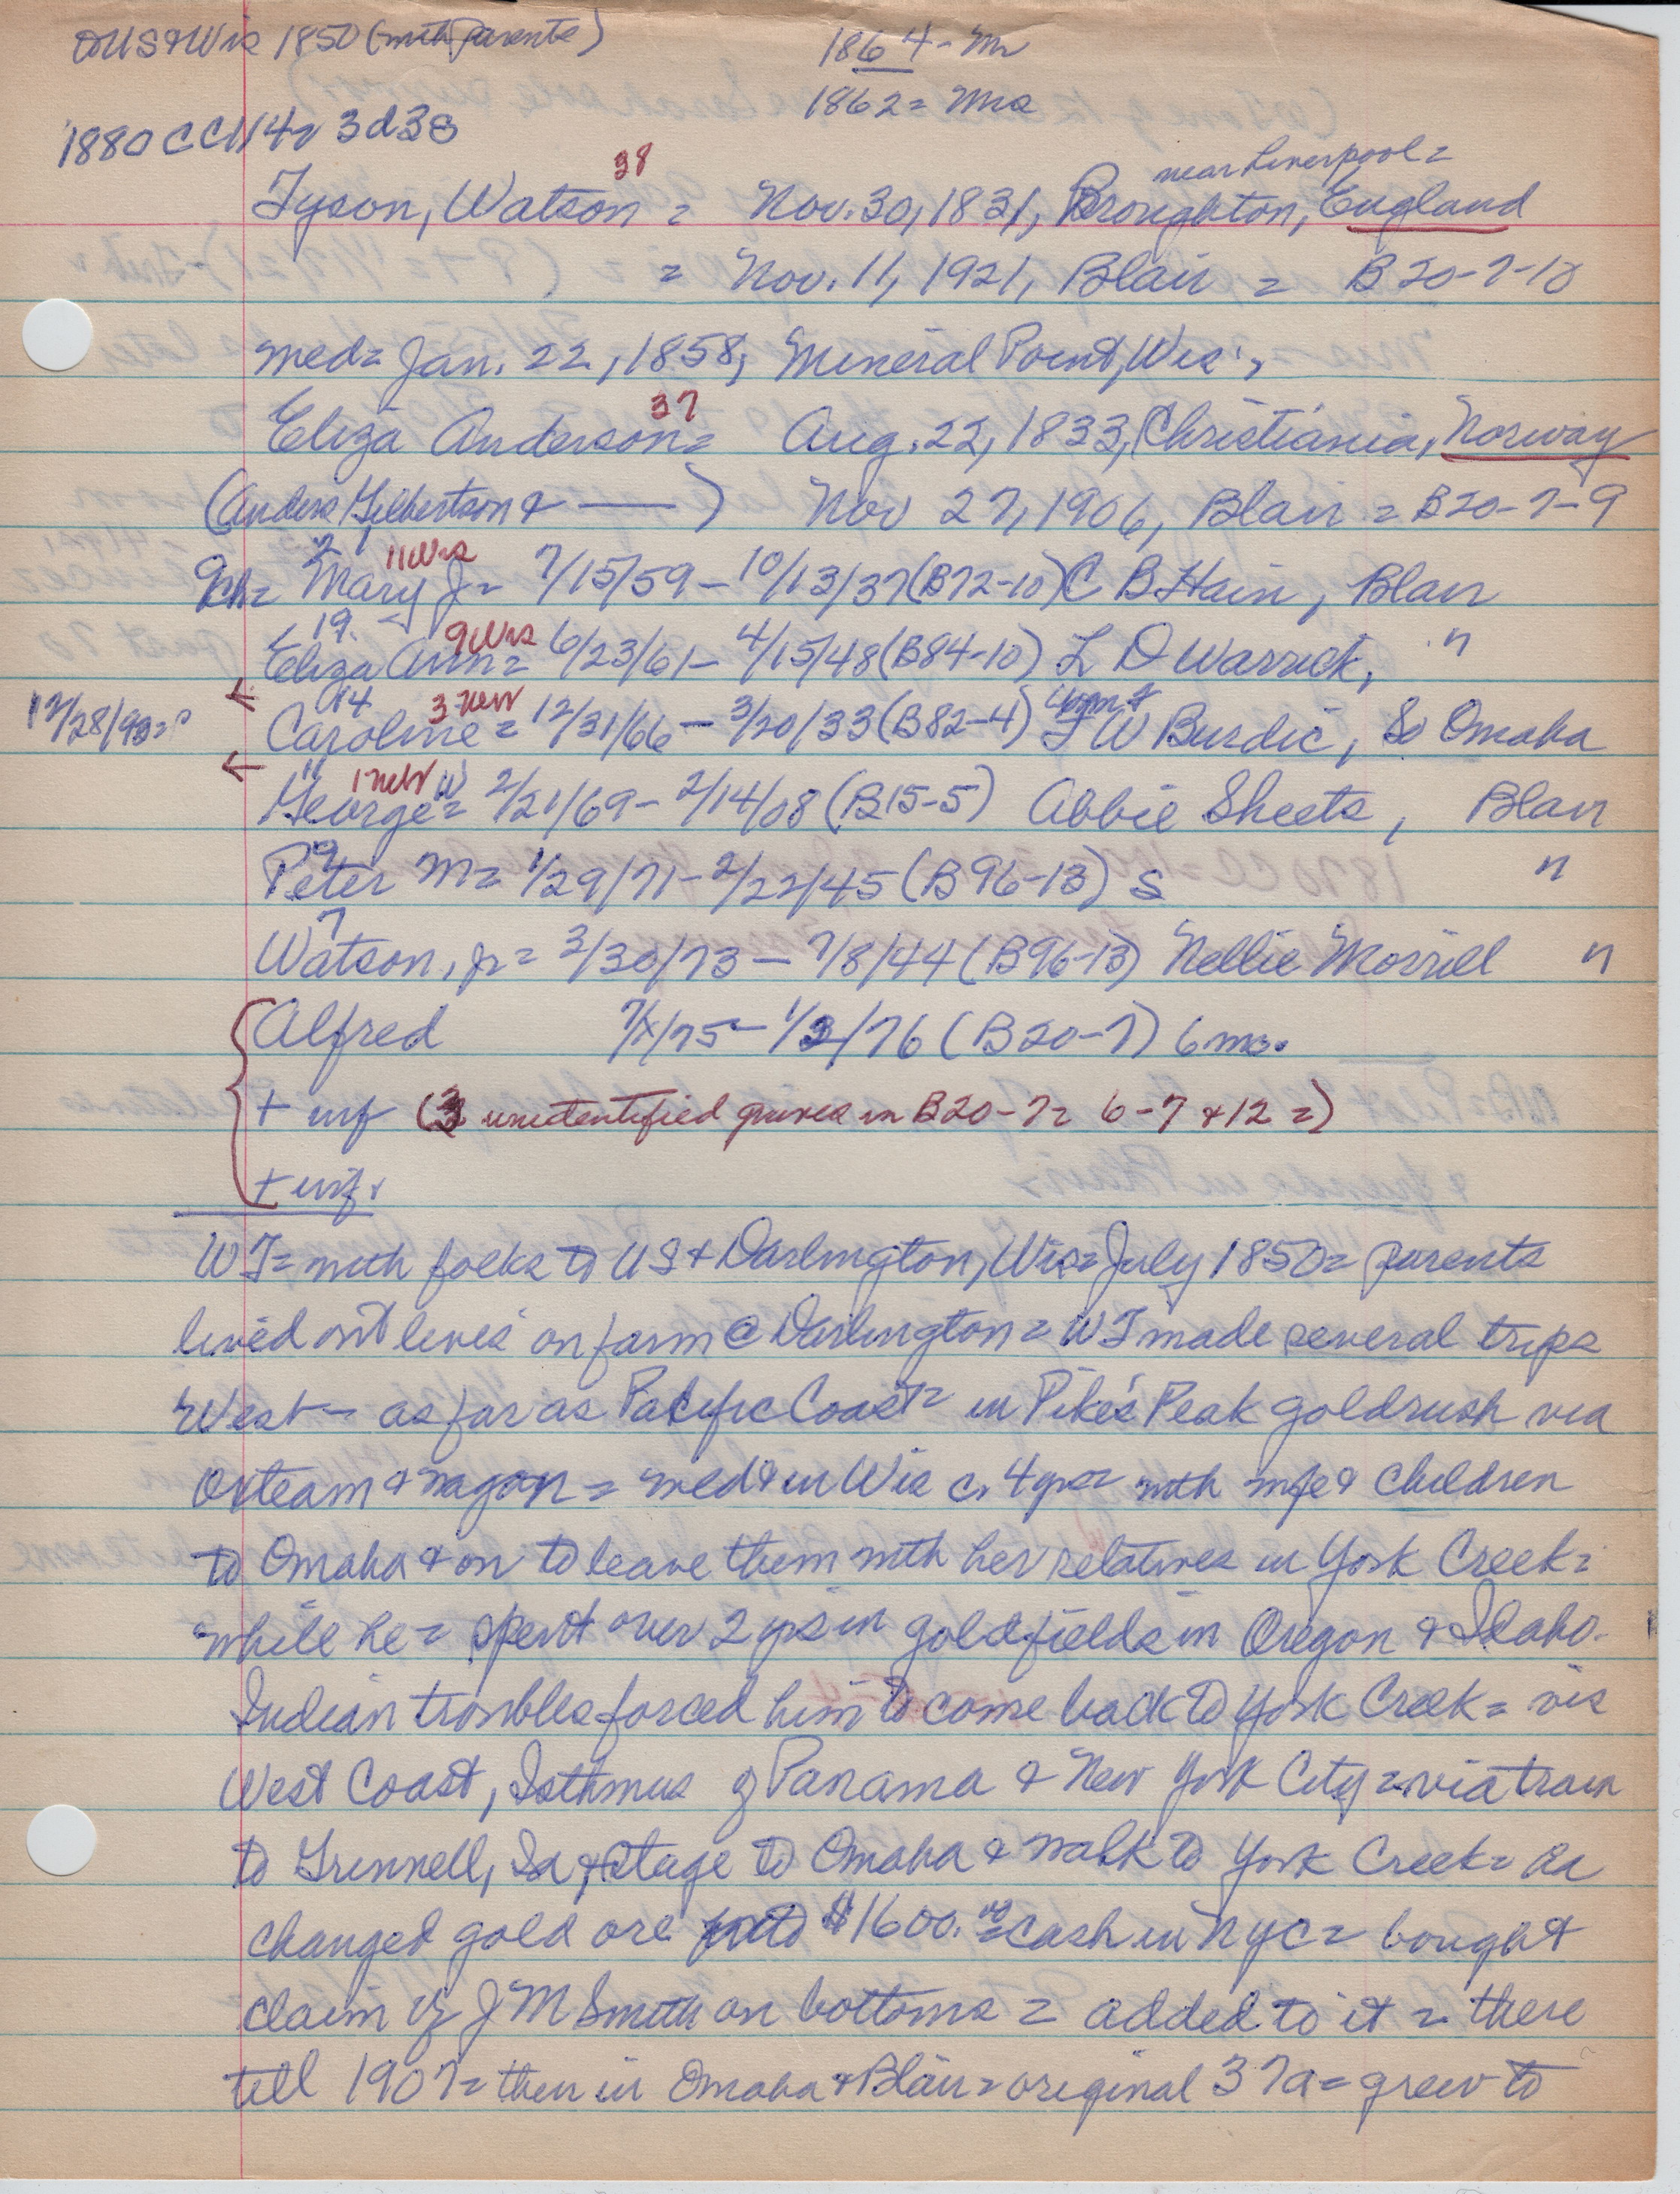 to US & Wis 1850 (with parents)
1864 - Mr
1862 = Mrs
1880 CC 114v 3d3s
38
near Liverpool =
Tyson, Watson = Nov. 30, 1831, Broughton, England
= Nov. 11, 1921, Blair = B 20-7-10
med = Jan. 22, 1858, Mineral Point, Wis.,
37
Eliza Anderson = Aug. 22, 1833, Christiania, Norway
(Anders Gilbertson & —) Nov 27, 1906, Blair = B20-7-9
11 Wis
9ch = Mary J = 7/15/59 - 10/13/37 (B72-10) C B Hain, Blair
19 9 Wis
Eliza Ann = 6/23/61 - 4/15/48 (B84-10) L D Warrick, "
14 3 Neb
12/28/93 = ? Caroline = 12/31/66 - 3/20/33 (B82-4) F W Burdic, So Omaha
11 1 Neb
George = 2/21/69 - 2/14/08 (B15-5) Abbie Sheets, Blair
9
Peter M = 1/29/71 - 2/22/45 (B96-13) S "
7
Watson, Jr = 3/30/73 - 7/8/44 (B96-13) Nellie Morrill "
Alfred 7/x/75 - 1/3/76 (B20-7) 6 mo.
+ inf (3 unidentified graves in B20-7 = 6-7 & 12 =)
+ inf.
WT = with folks to US & Darlington, Wis = July 1850 = parents
lived out lives on farm @ Darlington = WT made several trips
West - as far as Pacific Coast = in Pike's Peak goldrush via
oxteam & wagon = med & in Wis c. 4 yrs = with wife & children
to Omaha & on to leave them with her relatives in York Creek =
while he = spent over 2 yrs in goldfields in Oregon & Idaho.
Indian troubles forced him to come back to York Creek = via
West Coast, Isthmus of Panama & New York City = via train
to Grinnell, Ia, & stage to Omaha & walk to York Creek =
changed gold ore into $1600.00 = cash in NYC = bought
claim of J M Smith on bottoms = added to it = there
till 1907 = then in Omaha & Blair = original 37a = grew to